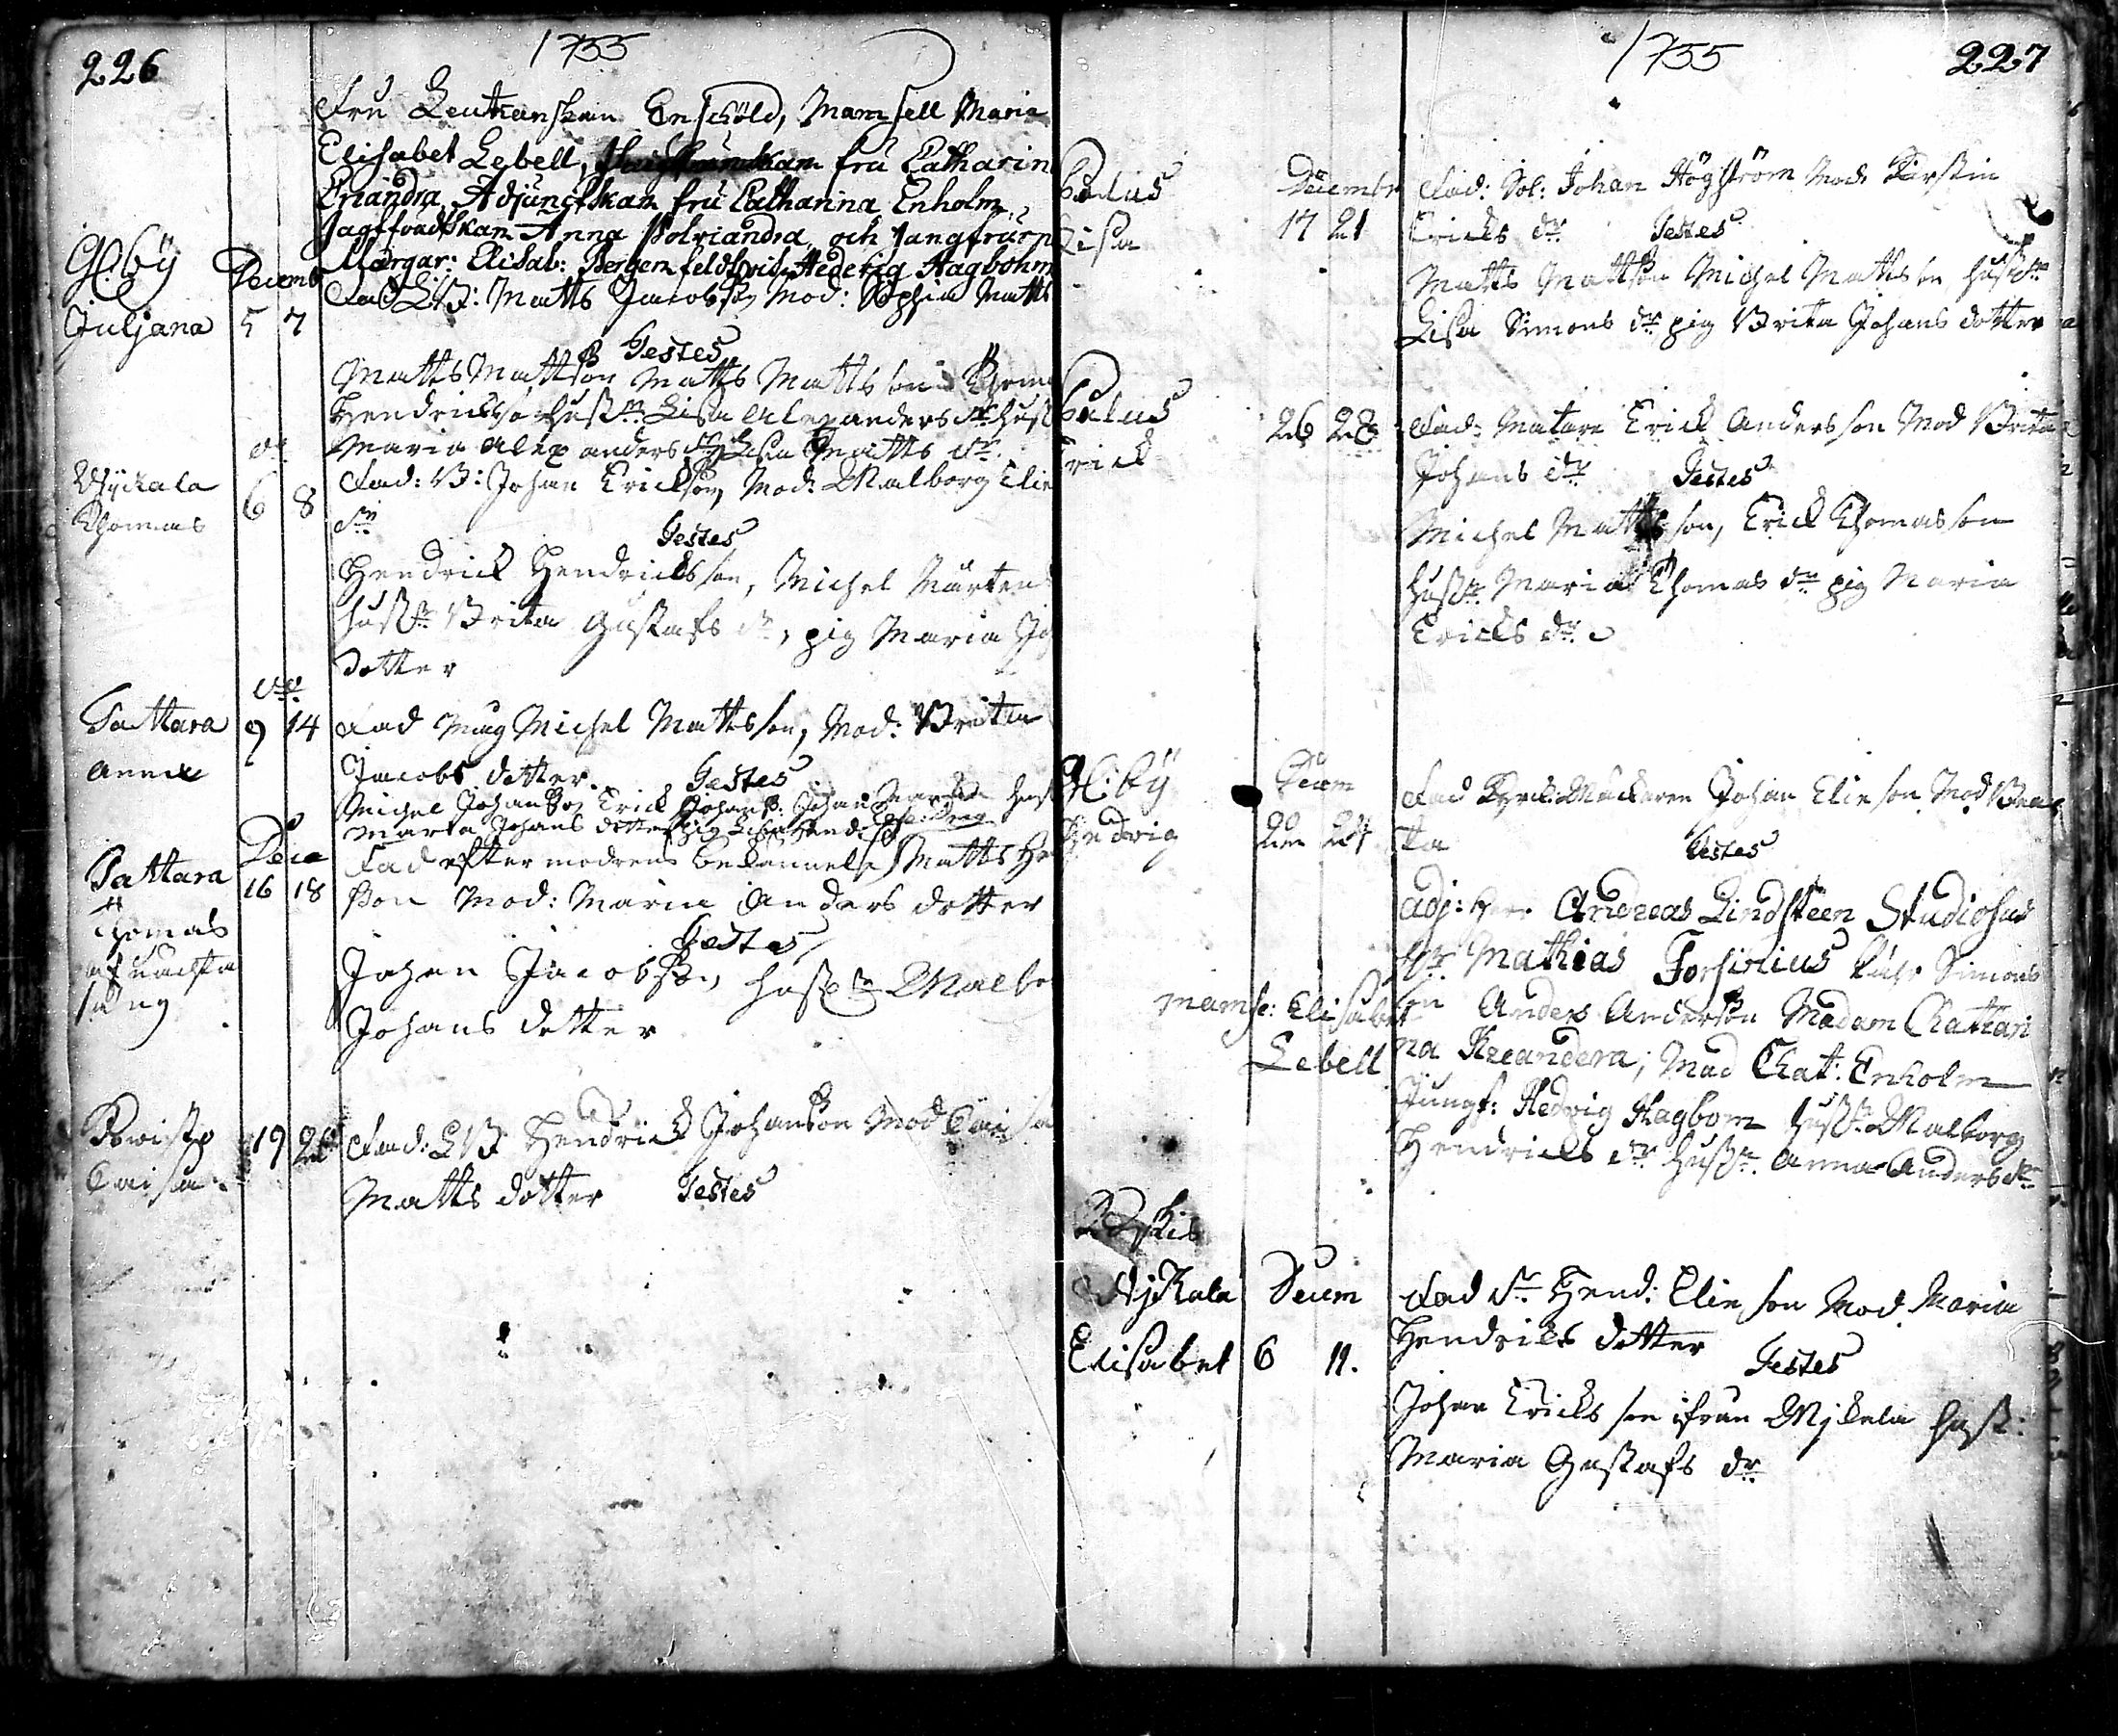 226
1755
Fru Leutnanskan Enschöld, Mamsell Maria
Elisabet Lebell, fru Catharin
Eriandra, Adjunctskan fru Catharina Enholm,
Jagtfoudskan Anna Polviandra, och Jungfrurn
Margar: Elisab: Bergenfeldt, Hedevig Hagbohm
Decemb
Juljana 5 7
Fad: Matts Jacobsson Mod: Sophia Matts
Testes
Matts Mattsson Matts Mattsson Thom
Hendricksson hustr: Lisa Alexanders dr hust
Maria Alexanders dr Lisa Matts dr.
Wyckala
Thomas
6 8
Fad: B: Johan Ericksson, Mod: Walborg Elie
dr
Testes
Hendrick Hendricksson, Michel Mårtens
hustr Brita Gustafs dr, pig Maria Jo
dotter
Tattara 9 14
Anna
Fad Michel Mattsson, Mod: Brita
Jacobs dotter. Testes
Michel Johansson Erick Johans: Johan
Marta Johans dotter pig Lisa Hend
Dece
Tattara
16 18
Thomas
af oächta
säng
Fad efter modrens bekännelse Matts He
sson Mod: Maria Anders dotter
Testes
Johan Jacobsson, hustr Walbo
Johans dotter
Caisa
19 26
Fad: Hendrick Johansson Mod Caisa
Matts dotter Testes
1755
227
Lisa
Decembr
17 21
Fad: Sol: Johan Högström Mod: Kirstin
Ericks dr Testes
Matts Mattson Michel Mattsson hustr
Lisa Simons dr pig Brita Johans dotter
Erick
26 28
Fad: Matare Erick Andersson Mod Brita
Johans dr Testes
Michel Mattsson, Erick Thomasson
hustr Maria Thomas dr pig Maria
Ericks dr
K: by
Hedvig
Decem
22 24
Fad Johan Elieson Mod Bea
ta Testes
Adj: Herr Andreas Lindsteen Studiosus
Hr Mathias Forsirius Simons
son Anders Andersson Madam Chatari
na Kreandera; Mad Chat: Enholm
mamse: Elisabet
Lebell
Jungf: Hedvig Hagbom hustr Walborg
Hendricks dr hustr. Anna Anders dr
Wyckala
Elisabet
Decem
6 11.
Fad dr Hend: Elieson Mod Maria
Hendricks dotter Testes
Johan Ericksson ifrån Wyckala hust:
Maria Gustafs dr